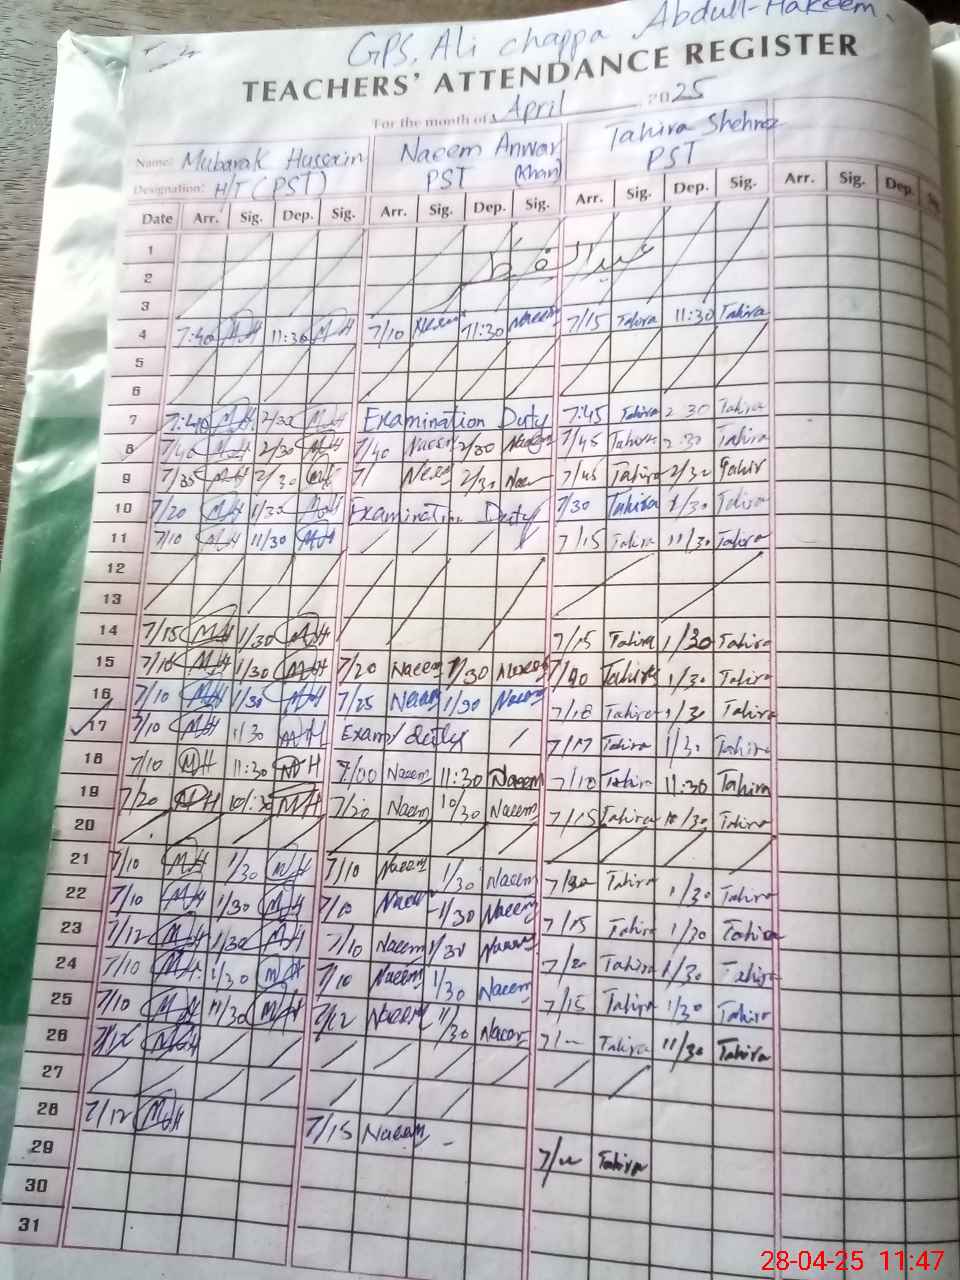 GPS, Ali chappa Abdull-Hakeem.
TEACHERS' ATTENDANCE REGISTER
For the month of April 2025
Name: Mubarak Hussain Naeem Anwar (Khan) Tahira Shehnaz
Designation: H/T (PST) PST PST
Date Arr. Sig. Dep. Sig. Arr. Sig. Dep. Sig. Arr. Sig. Dep. Sig. Arr. Sig. Dep. Sig.
1 عید الفطر
2
3
4 7:40 MH 11:30 MH 7/10 Naeem 11:30 Naeem 7/15 Tahira 11:30 Tahira
5
6
7 7:40 MH 2/30 MH Examination Duty 7:45 Tahira 2 30 Tahira
8 7/40 MH 2/30 MH 7/40 Naeem 2/30 Naeem 7/45 Tahira 2:30 Tahira
9 7/35 MH 2/30 7/ Naeem 2/30 Naeem 7/45 Tahira 2/30 Tahira
10 7/20 MH 1/30 MH Examination Duty 7/30 Tahira 1/30 Tahira
11 7/10 MH 11/30 MH 7/15 Tahira 11/30 Tahira
12
13
14 7/15 MH 1/30 MH 7/15 Tahira 1/30 Tahira
15 7/10 MH 1/30 MH 7/20 Naeem 1/30 Naeem Tahira 1/30 Tahira
16 7/10 MH 1/30 MH 7/25 Naeem 1/30 Naeem 7/18 Tahira 1/30 Tahira
17 7/10 MH 1/30 MH Exam/duty 7/17 Tahira 1/30 Tahira
18 7/10 MH 11:30 MH Naeem 11:30 Naeem 7/10 Tahira 11:30 Tahira
19 7/20 MH 10:30 MH 7/20 Naeem 10/30 Naeem 7/15 Tahira 10/30 Tahira
20
21 7/10 MH 1/30 MH 7/10 Naeem 1/30 Naeem Tahira 1/30 Tahira
22 7/10 MH 1/30 MH 7/10 Naeem 1/30 Naeem 7/15 Tahira 1/30 Tahira
23 7/12 MH 1/30 MH 7/10 Naeem 1/30 Naeem Tahira 1/30 Tahira
24 7/10 MH 1/30 MH 7/10 Naeem 1/30 Naeem 7/15 Tahira 1/30 Tahira
25 7/10 MH 11/30 MH 7/12 Naeem 11/30 Naeem Tahira 11/30 Tahira
26 7/12 MH
27
28 7/12 MH 7/15 Naeem Tahira
29
30
31
28-04-25 11:47